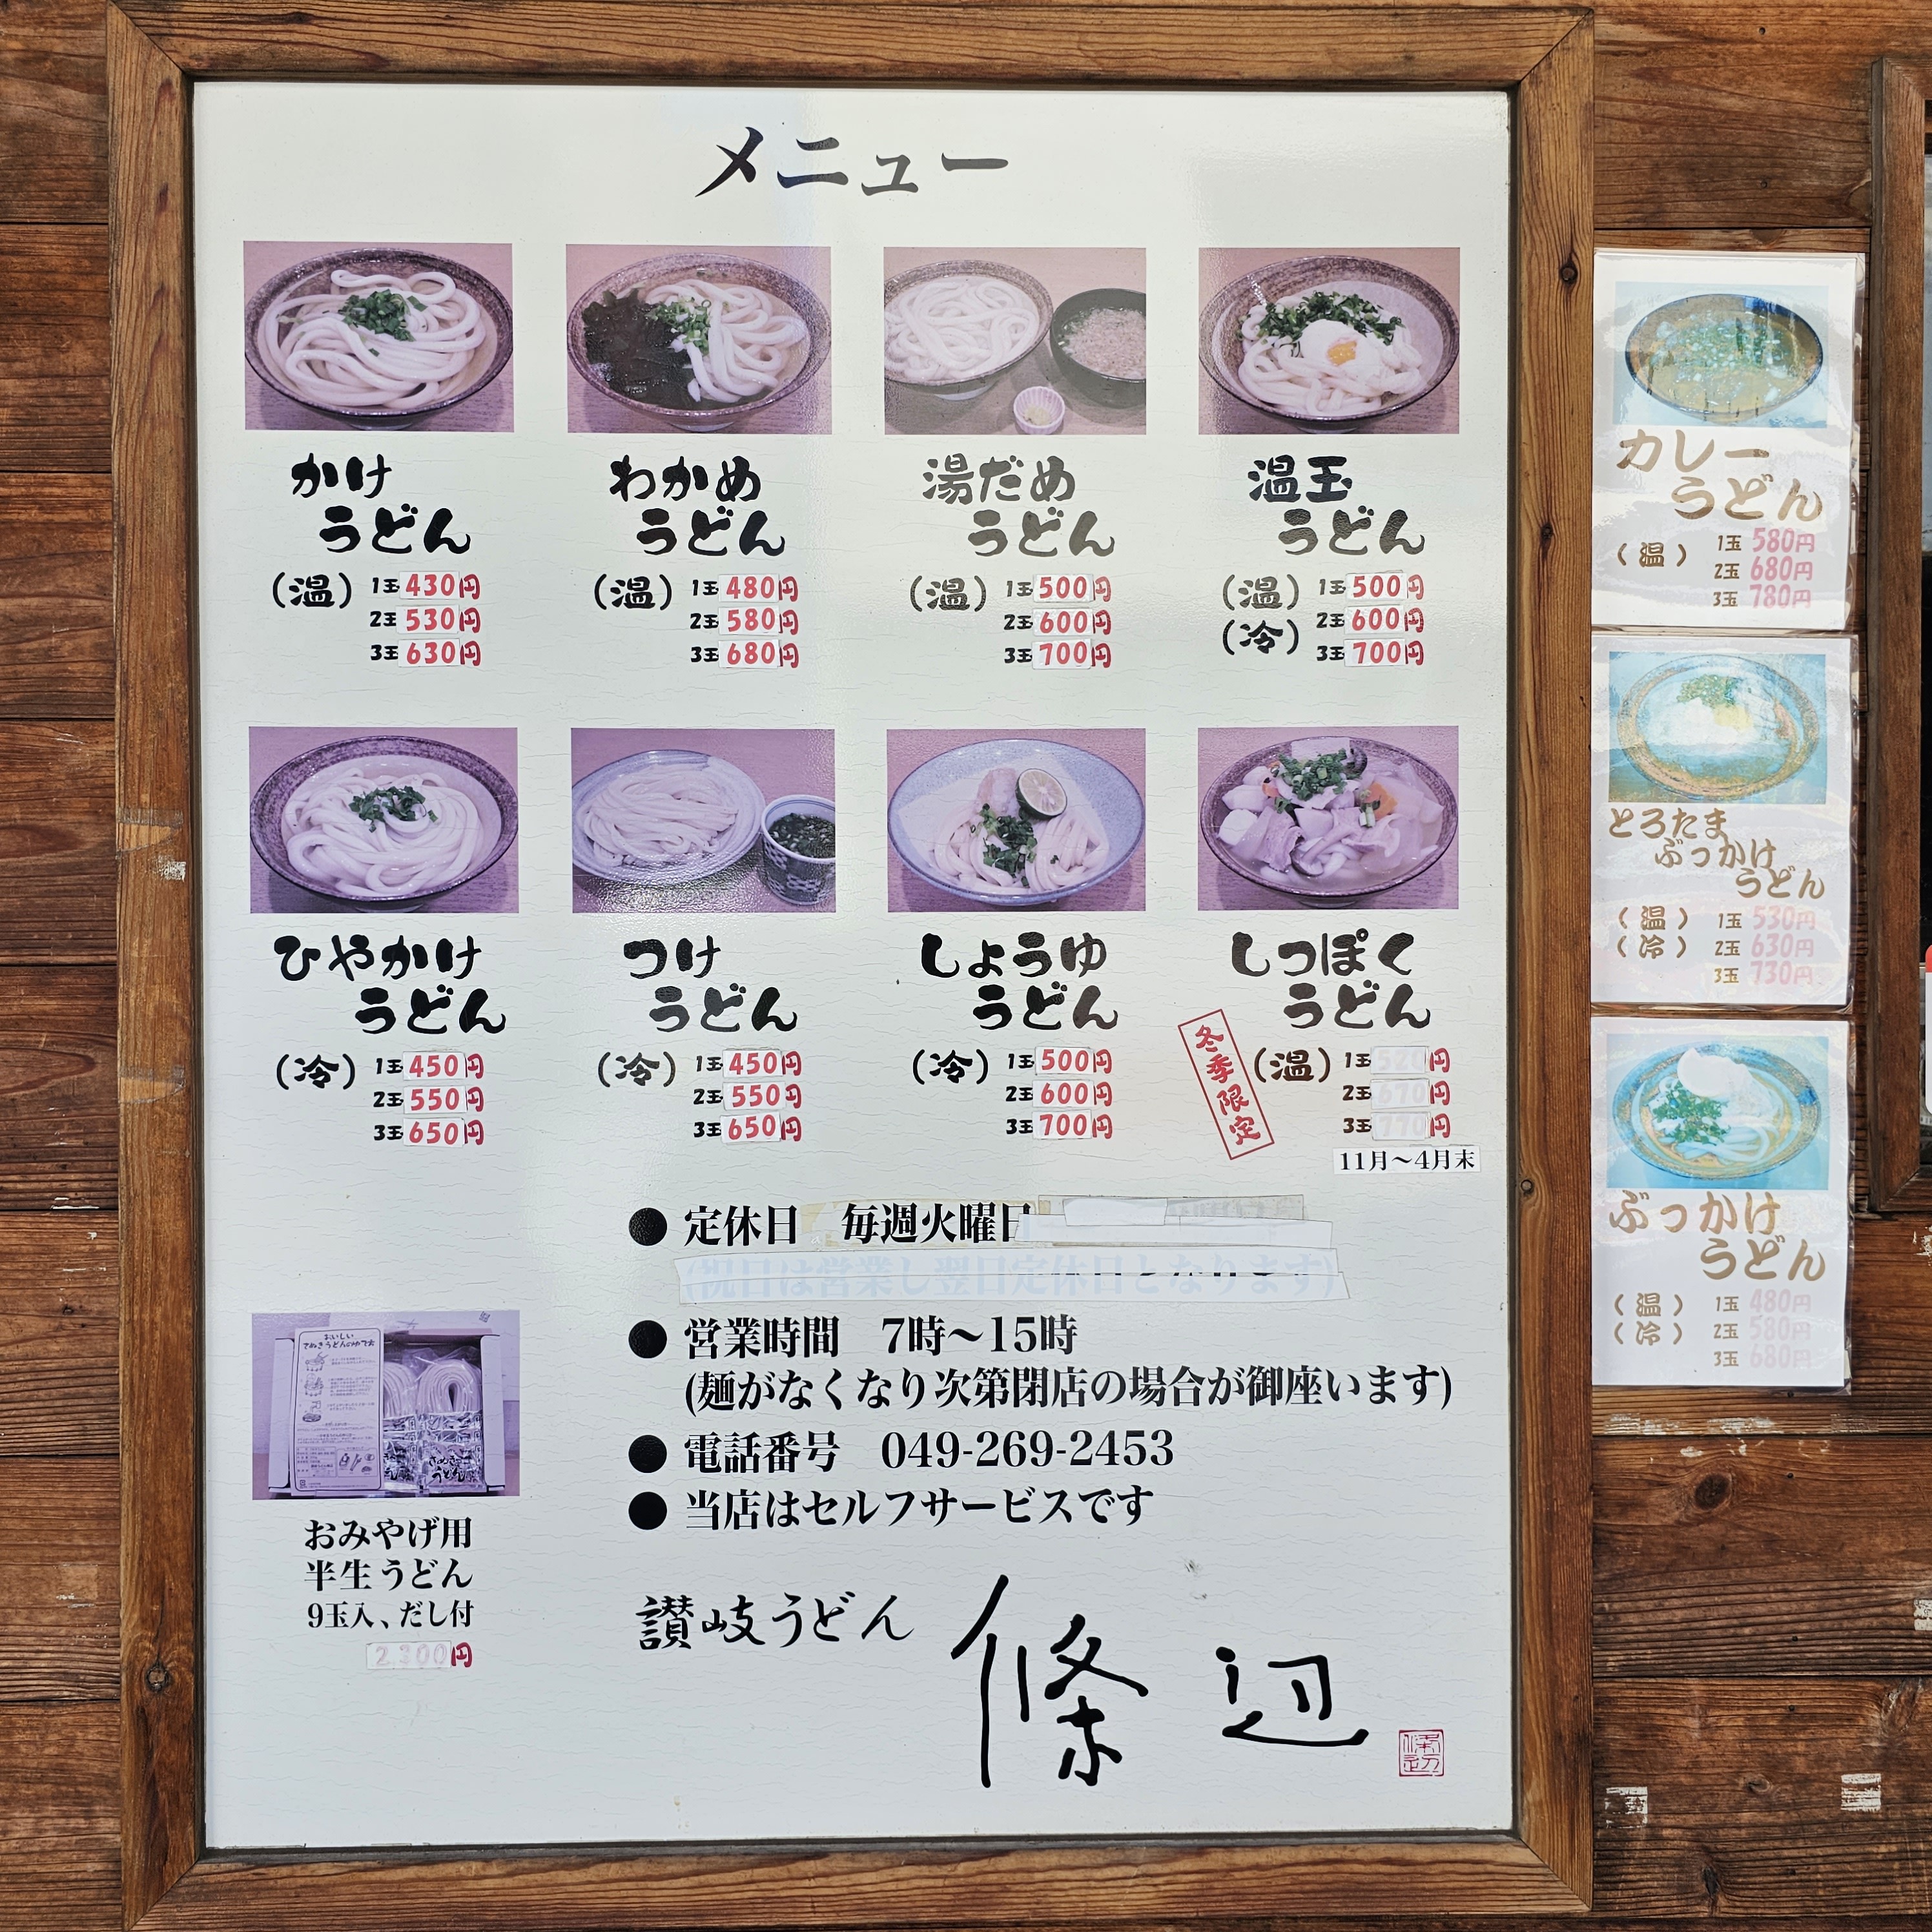 メニュー
かけ
うどん
(温) 1玉 430円
2玉 530円
3玉 630円
わかめ
うどん
(温) 1玉 480円
2玉 580円
3玉 680円
湯だめ
うどん
(温) 1玉 500円
2玉 600円
3玉 700円
温玉
うどん
(温) 1玉 500円
(冷) 2玉 600円
3玉 700円
ひやかけ
うどん
(冷) 1玉 450円
2玉 550円
3玉 650円
つけ
うどん
(冷) 1玉 450円
2玉 550円
3玉 650円
しょうゆ
うどん
(冷) 1玉 500円
2玉 600円
3玉 700円
しっぽく
うどん
冬季限定
(温) 1玉 円
2玉 670円
3玉 770円
11月〜4月末
● 定休日 毎週火曜日
(祝日は営業し翌日定休日となります)
● 営業時間 7時〜15時
(麺がなくなり次第閉店の場合が御座います)
● 電話番号 049-269-2453
● 当店はセルフサービスです
おいしい
さぬきうどんのゆで方
おみやげ用
半生うどん
9玉入、だし付
円
讃岐うどん 條辺
カレー
うどん
(温) 1玉 580円
2玉 680円
3玉 780円
とろたま
ぶっかけ
うどん
(温) 1玉 530円
(冷) 2玉 630円
3玉 730円
ぶっかけ
うどん
(温) 1玉 480円
(冷) 2玉 580円
3玉 680円